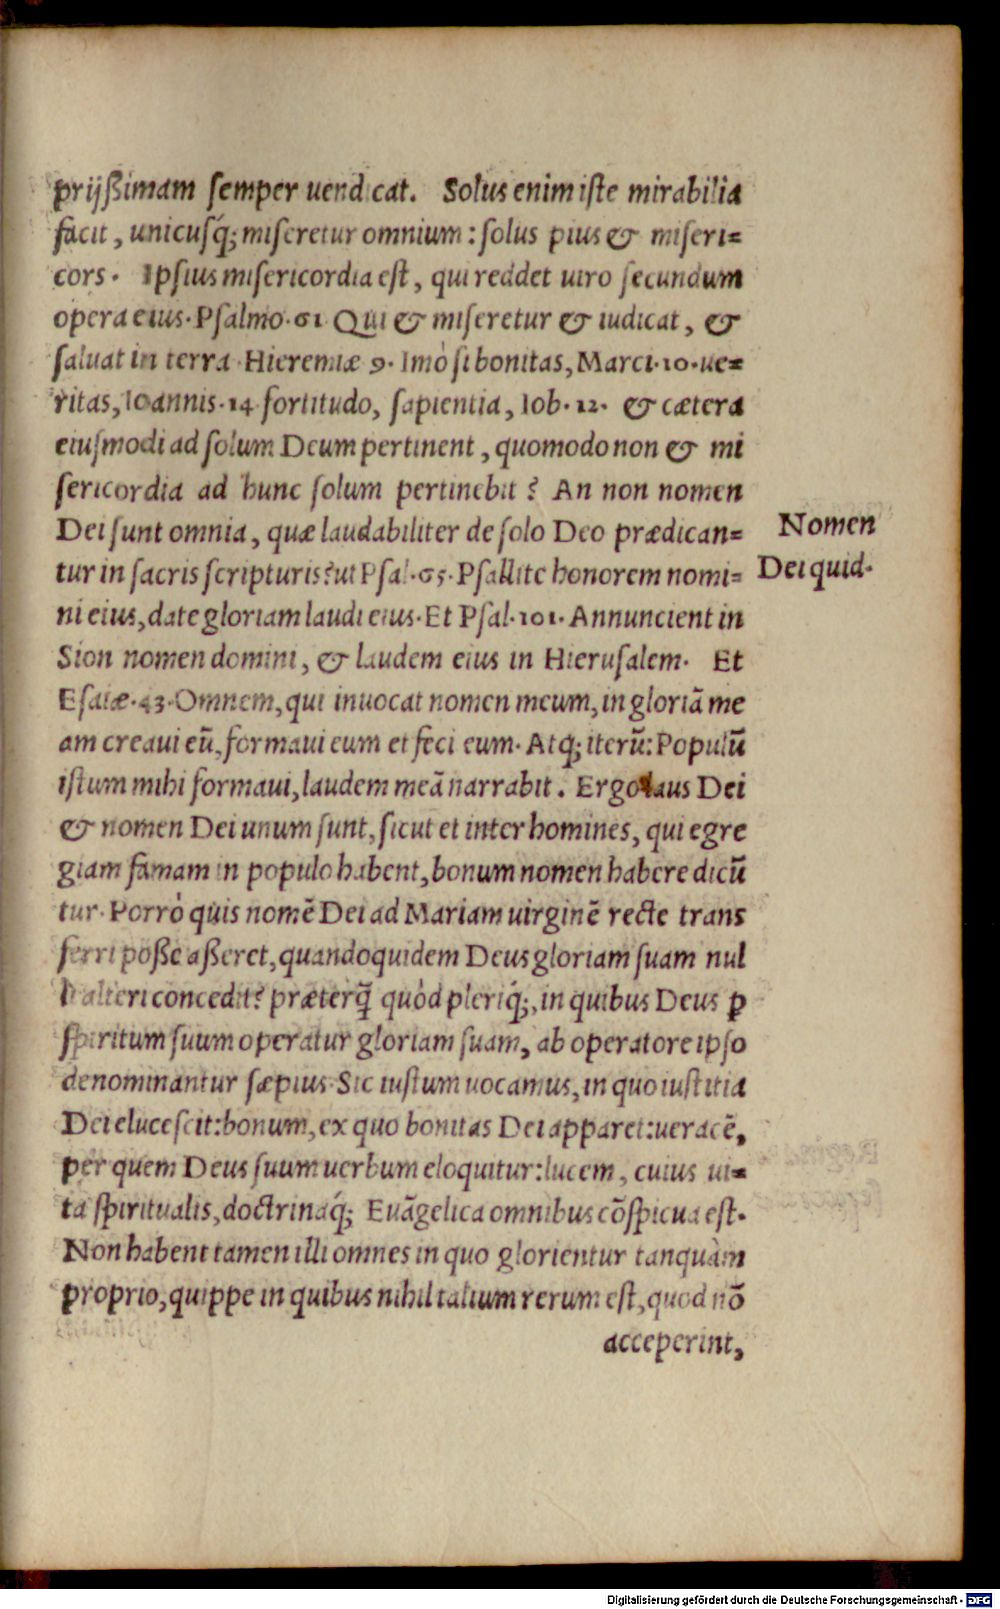 prijßimam semper uendicat. Solus enim iste mirabilia
facit, unicusq́; miseretur omnium: solus pius & miseri=
cors. Ipsius misericordia est, qui reddet uiro secundum
opera eius. Psalmo. 61 Qui & miseretur & iudicat, &
saluat in terra. Hieremiæ 9. Imò si bonitas, Marci. 10. ue=
ritas, Ioannis. 14 fortitudo, sapientia, Iob. 12. & cætera
eiusmodi ad solum Deum pertinent, quomodo non & mi
sericordia ad hunc solum pertinebit? An non nomen
Dei sunt omnia, quæ laudabiliter de solo Deo prædican=
tur in sacris scripturis? ut Psal. 65. Psallite honorem nomi=
ni eius, date gloriam laudi eius. Et Psal. 101. Annuncient in
Sion nomen domini, & laudem eius in Hierusalem. Et
Esaiæ. 43. Omnem, qui inuocat nomen meum, in gloriã me
am creaui eũ, formaui eum et feci eum. Atq; iterũ: Populũ
istum mihi formaui, laudem meã narrabit. Ergo laus Dei
& nomen Dei unum sunt, sicut et inter homines, qui egre
giam famam in populo habent, bonum nomen habere dicũ
tur. Porrò quis nomẽ Dei ad Mariam uirginẽ recte trans
ferri poße aßeret, quandoquidem Deus gloriam suam nul
li alteri concedit? præterq̃ quòd pleriq́;, in quibus Deus ꝑ
spiritum suum operatur gloriam suam, ab operatore ipso
denominantur sæpius. Sic iustum uocamus, in quo iustitia
Dei elucescit: bonum, ex quo bonitas Dei apparet: ueracẽ,
per quem Deus suum uerbum eloquitur: lucem, cuius ui=
ta spiritualis, doctrinaq́; Euãgelica omnibus cõspicua est.
Non habent tamen illi omnes in quo glorientur tanquàm
proprio, quippe in quibus nihil talium rerum est, quod nõ
acceperint,
Nomen
Dei quid.
Digitalisierung gefördert durch die Deutsche Forschungsgemeinschaft - DFG